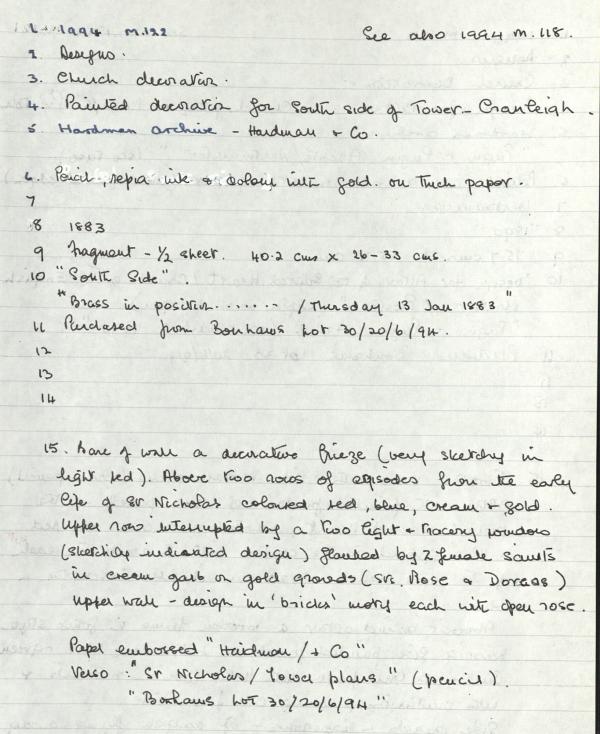 1. 1994 M.122 See also 1994 M.118.
2. Designs.
3. Church decoration.
4. Painted decoration for South side of Tower - Cranleigh.
5. Hardman archive - Hardman & Co.
6. Pencil, sepia ink & colour with gold. on Thick paper.
7
8 1883
9 fragment - 1/2 sheet. 40.2 cms x 26-33 cms.
10 "South Side".
"Brass in position....... / Thursday 13 Jan 1883"
11 Purchased from Bonhams Lot 30/20/6/94.
12
13
14
15. Base of wall a decorative frieze (very sketchy in
light red). Above two rows of episodes from the early
life of St Nicholas coloured red, blue, cream & gold.
Upper row interrupted by a two light & tracery windows
(sketchily indicated design) flanked by 2 female saints
in cream garb on gold grounds (Sts. Rose & Dorcas)
Upper wall - design in 'bricks' motif each with open rose.
Paper embossed "Hardman / & Co"
Verso : "St Nicholas / Tower plans" (pencil).
"Bonhams Lot 30/20/6/94"